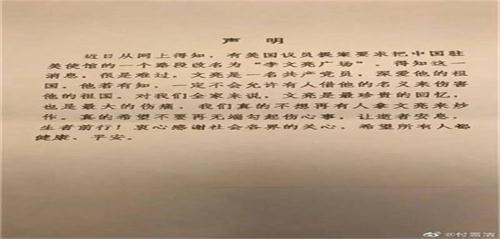 声明
近日从网上得知，有美国议员提案要求把中国驻
美使馆的一个路段改名为“李文亮广场”，得知这一
消息，很是难过，文亮是一名共产党员，深爱他的祖
国，他若有知，一定不会允许有人借他的名义来伤害
他的祖国，对我们全家来说，文亮是最珍贵的回忆，
也是最大的伤痛，我们真的不想再有人拿文亮来炒
作。真的希望不要再无端勾起伤心事，让逝者安息，
生者前行！衷心感谢社会各界的关心，希望所有人都
健康、平安。
@付雪洁